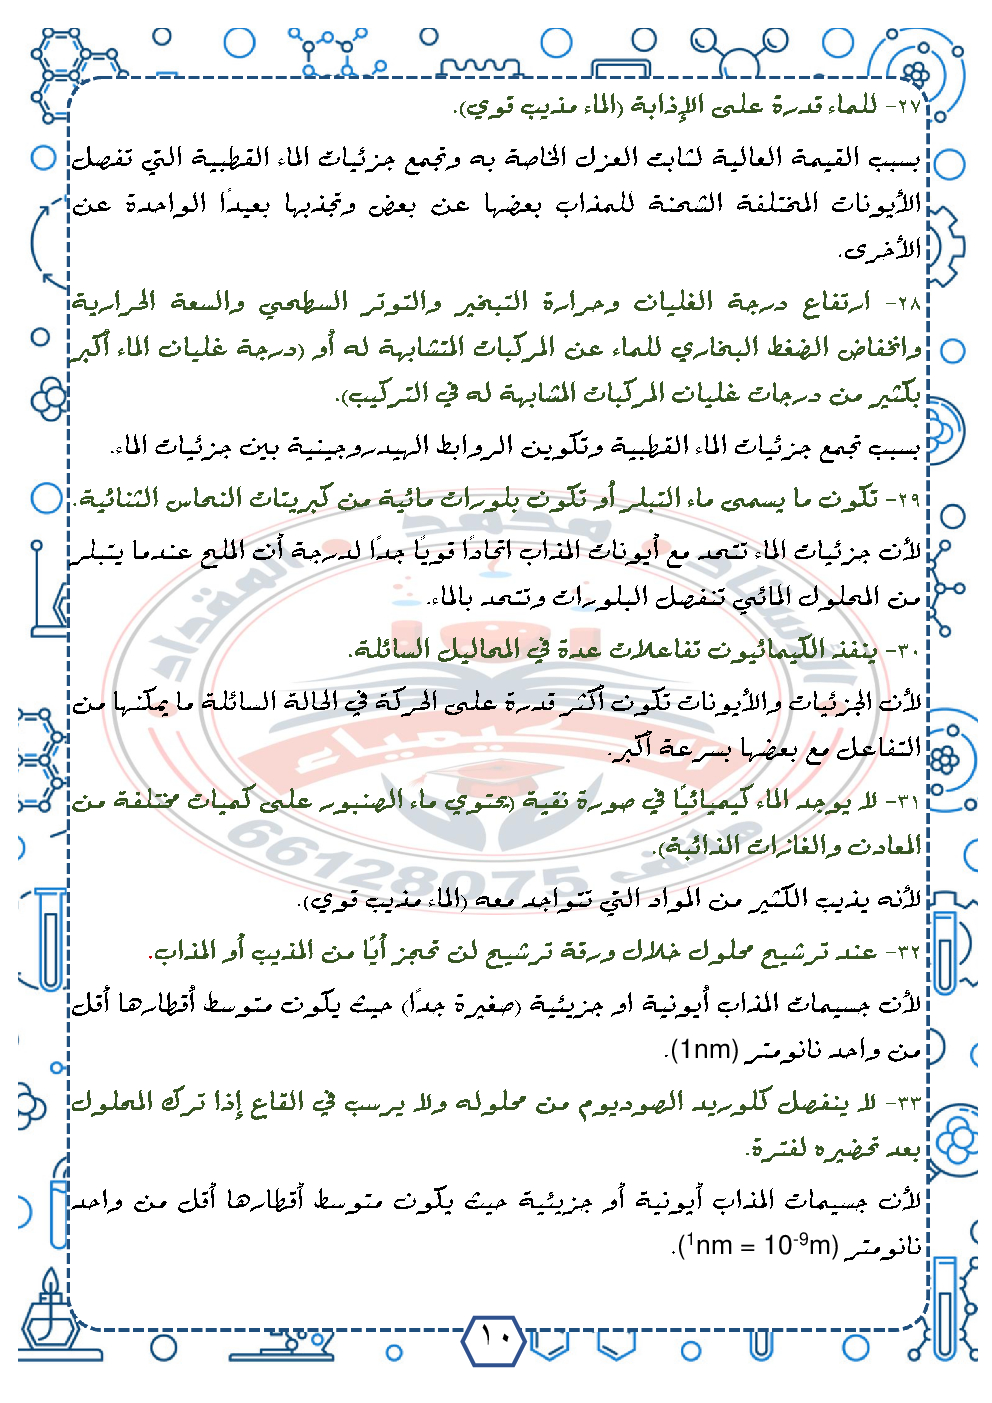 ٢٧- للماء قدرة على الإذابة (الماء مذيب قوي).
بسبب القيمة العالية لثابت العزل الخاصة به وتجمع جزئيات الماء القطبية التي تفصل
الأيونات المختلفة الشحنة للمذاب بعضها عن بعض وتجذبها بعيدًا الواحدة عن
الأخرى.
٢٨- ارتفاع درجة الغليان وحرارة التبخير والتوتر السطحي والسعة الحرارية
وانخفاض الضغط البخاري للماء عن المركبات المتشابهة له أو (درجة غليان الماء أكبر
بكثير من درجات غليان المركبات المشابهة له في التركيب).
بسبب تجمع جزئيات الماء القطبية وتكوين الروابط الهيدروجينية بين جزئيات الماء.
٢٩- تكون ما يسمى ماء التبلر أو تكون بلورات مائية من كبريتات النحاس الثنائية.
لأن جزئيات الماء تتحد مع أيونات المذاب اتحادًا قويًا جدًا لدرجة أن الملح عندما يتبلر
من المحلول المائي تنفصل البلورات وتتحد بالماء.
٣٠- ينفذ الكيمائيون تفاعلات عدة في المحاليل السائلة.
لأن الجزئيات والأيونات تكون أكثر قدرة على الحركة في الحالة السائلة ما يمكنها من
التفاعل مع بعضها بسرعة أكبر.
٣١- لا يوجد الماء كيميائيًا في صورة نقية (يحتوي ماء الصنبور على كميات مختلفة من
المعادن والغازات الذائبة).
لأنه يذيب الكثير من المواد التي تتواجد معه (الماء مذيب قوي).
٣٢- عند ترشيح محلول خلال ورقة ترشيح لن تحجز أيًا من المذيب أو المذاب.
لأن جسيمات المذاب أيونية او جزيئية (صغيرة جدًا) حيث يكون متوسط أقطارها أقل
من واحد نانومتر (1nm).
٣٣- لا ينفصل كلوريد الصوديوم من محلوله ولا يرسب في القاع إذا ترك المحلول
بعد تحضيره لفترة.
لأن جسيمات المذاب أيونية أو جزيئية حيث يكون متوسط أقطارها أقل من واحد
نانومتر (¹nm = 10⁻⁹m).
١٠
الأستاذ / محمد المقداد
الكيمياء
هاتف 66128075